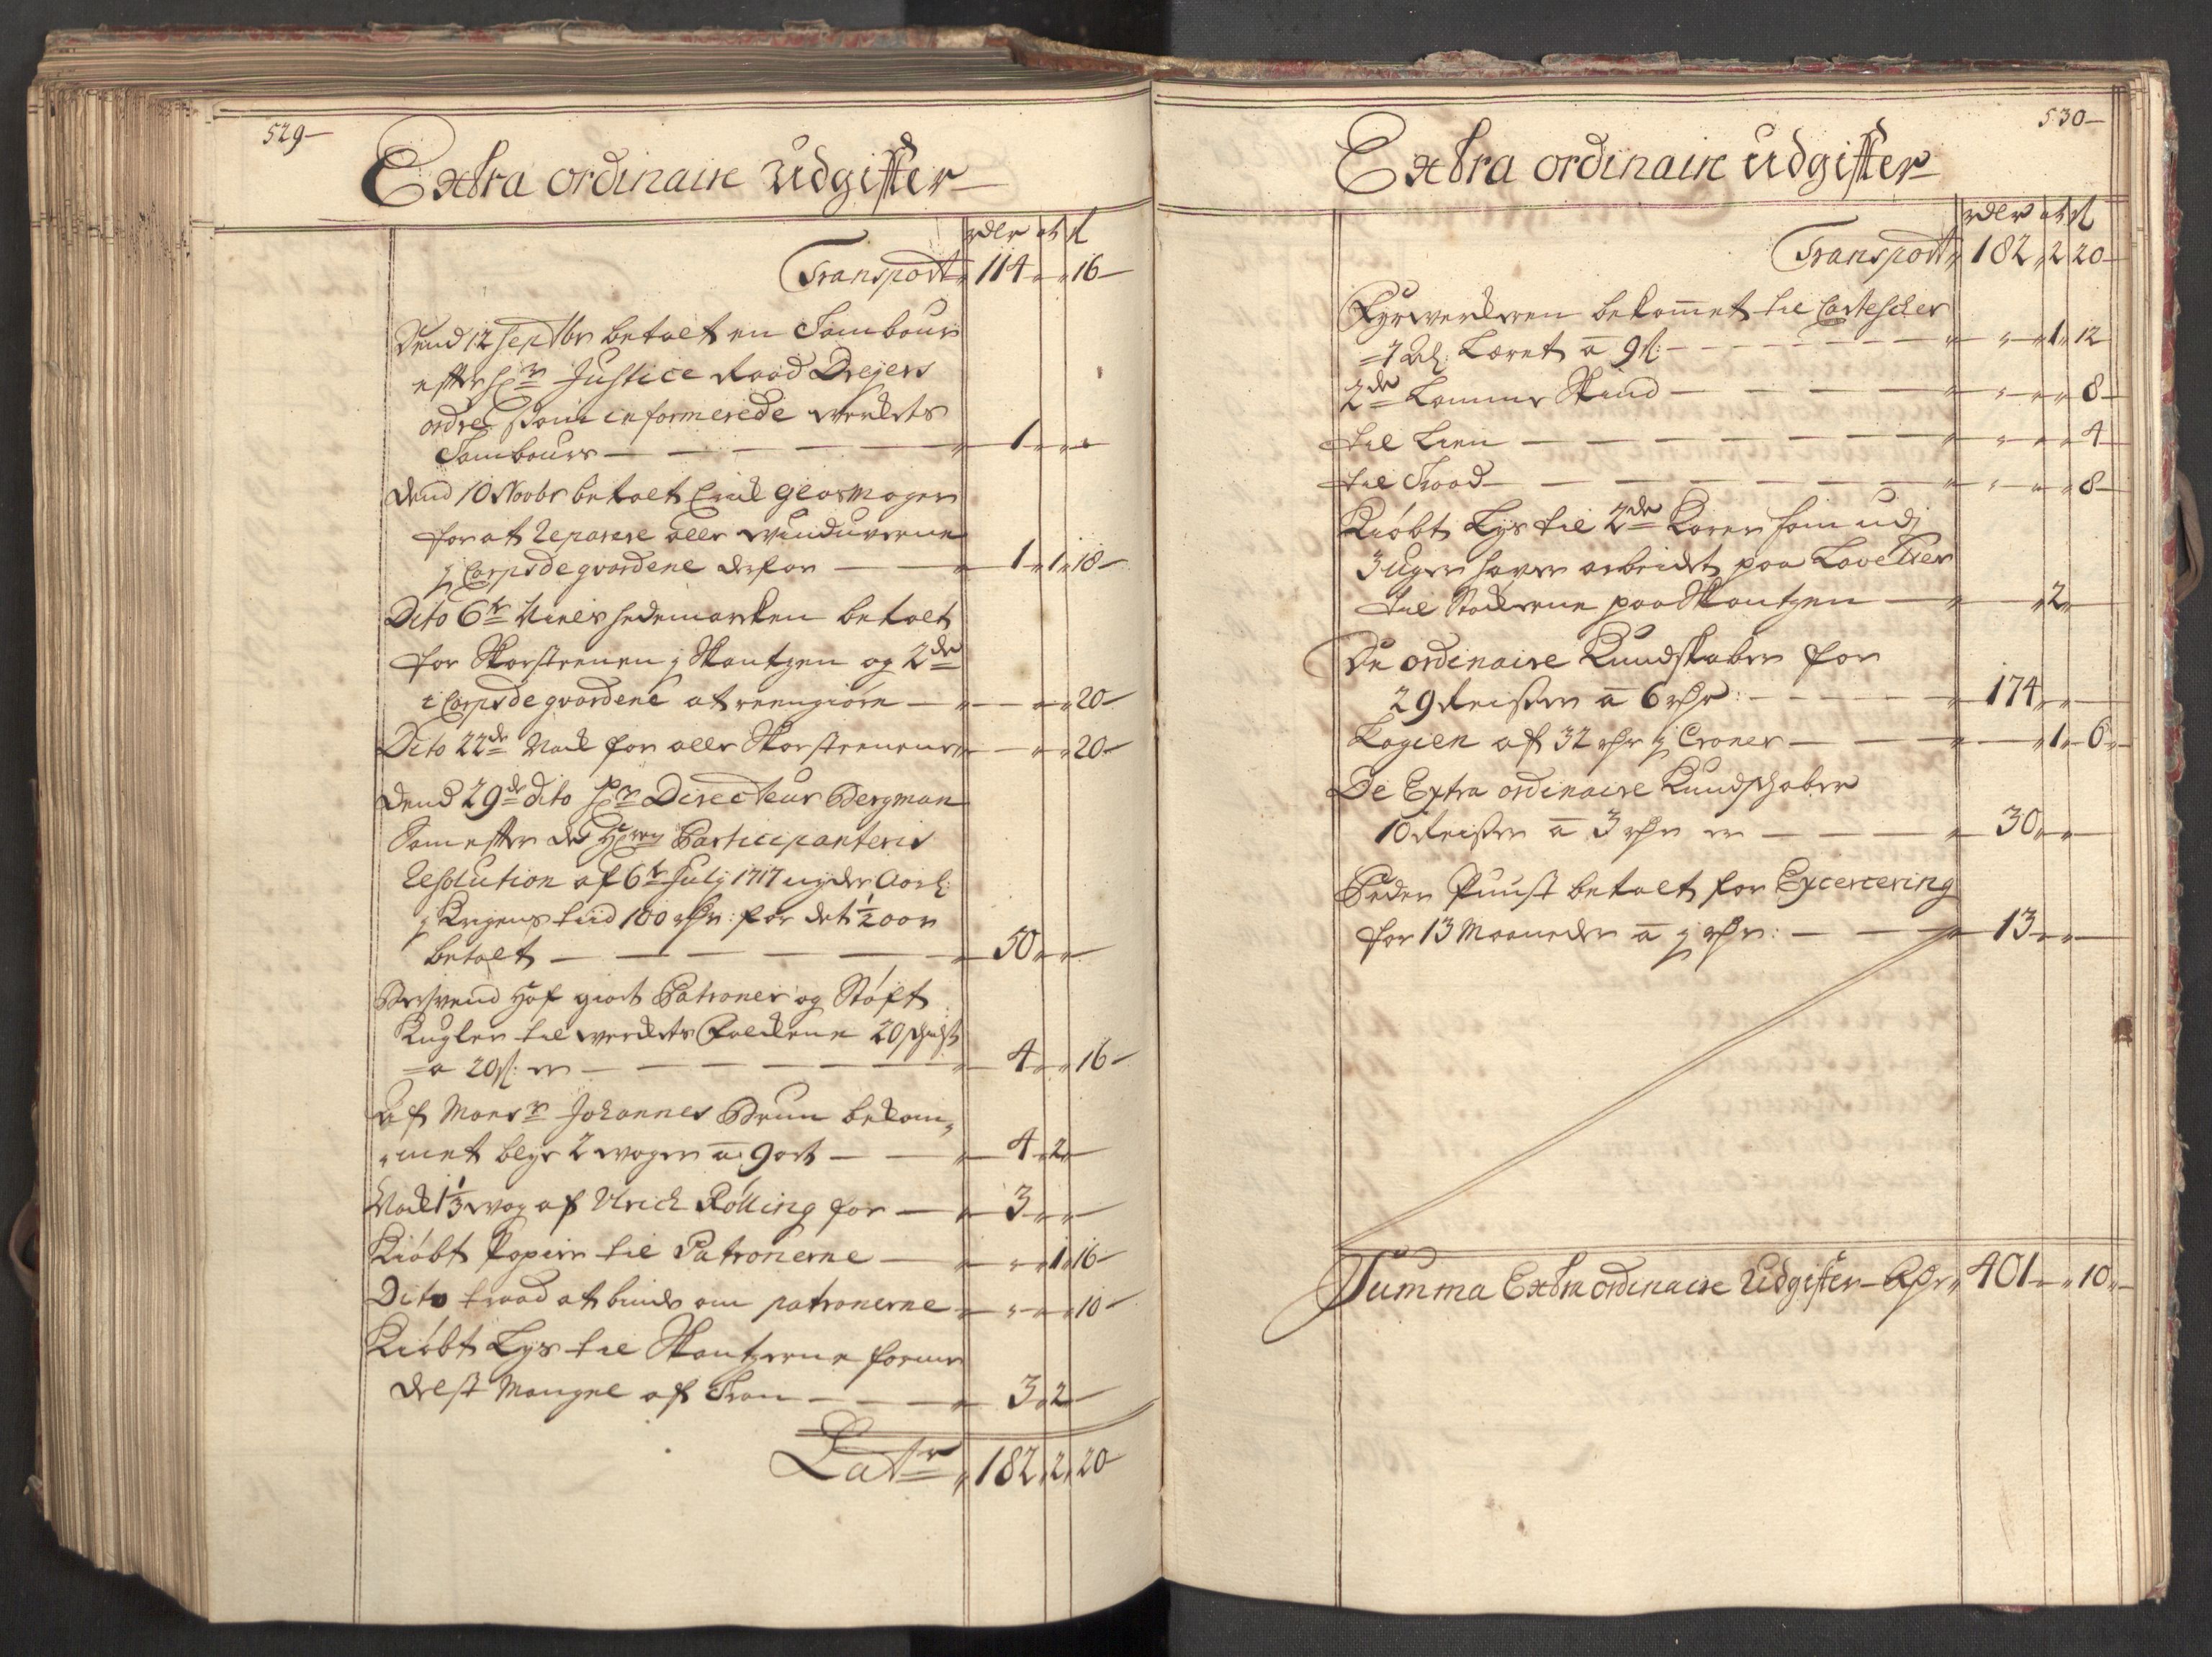 529
Extra ordinaire Udgifter
rdlr ort ß
Transport 114 " 16
Dend 12 Septbr betalt en Tambour
efter Hr Justice Raad Drejers
ordre som informerede werckets
Tambours 1 " "
Dend 10 Novbr betalt Glasmager
for at reparere alle winduerne
j Corps de gvardene derfor 1 1 18
Dito 6te Niels Hedemarken betalt
for Skorsteenen j Skantzen og 2de
i Corps de gvardene at reengiøre " " 20
Dito 22de Nock for alle Skorsteenene " " 20
Dend 29de dito Hr Directeur Bergman
Som efter de Hrrer Participanteris
Resolution af 6te July 1717 nyder Aarl:
j Krigens tiid 100 rdr: for det 1/2 aar
betalt 50 " "
Hof giort Patroner og Støft
Kugler til werckets Folckene 20
a 20 ß: er 4 " 16
Af Monsr Johannes Brun bekom,
,met blye 2 woger a 9 ort 4 2
Nock 1 1/3 wog af Ulrich Rölling for 3 " "
Kiøbt Papiir til Patronerne " 1 16
Dito traad at binde om patronerne " " 10
Kiøbt Lys til Skantzerne formedelst
Mangel af Tran 3 2
Latr 182 2 20
530
Extra ordinaire Udgifter
rdlr ort ß
Transport 182 2 20
Fyrwerckeren bekommet til Cartescher
7 Al: Læret a 9 ß: " 1 12
2de Lamme Skind " " 8
til Liim " " 4
til Traad " " 8
Kiøbt Lys til 2de Karer som udj
3 uger haver arbeidet paa Lavetter
til Støckerne paa Skantzen " 2
De ordinaire Kundskaber for
29 Reiser a 6 rdr: 174 " "
Lagien af 32 rdr j Croner " 1 6
De Extra ordinaire Kundschaber
10 Reiser a 3 rdr er 30 " "
Peder betalt for Excercering
for 13 Maaneder a j rdr: 13 " "
Summa Extra ordinaire Udgifter Rdr 401 " 10